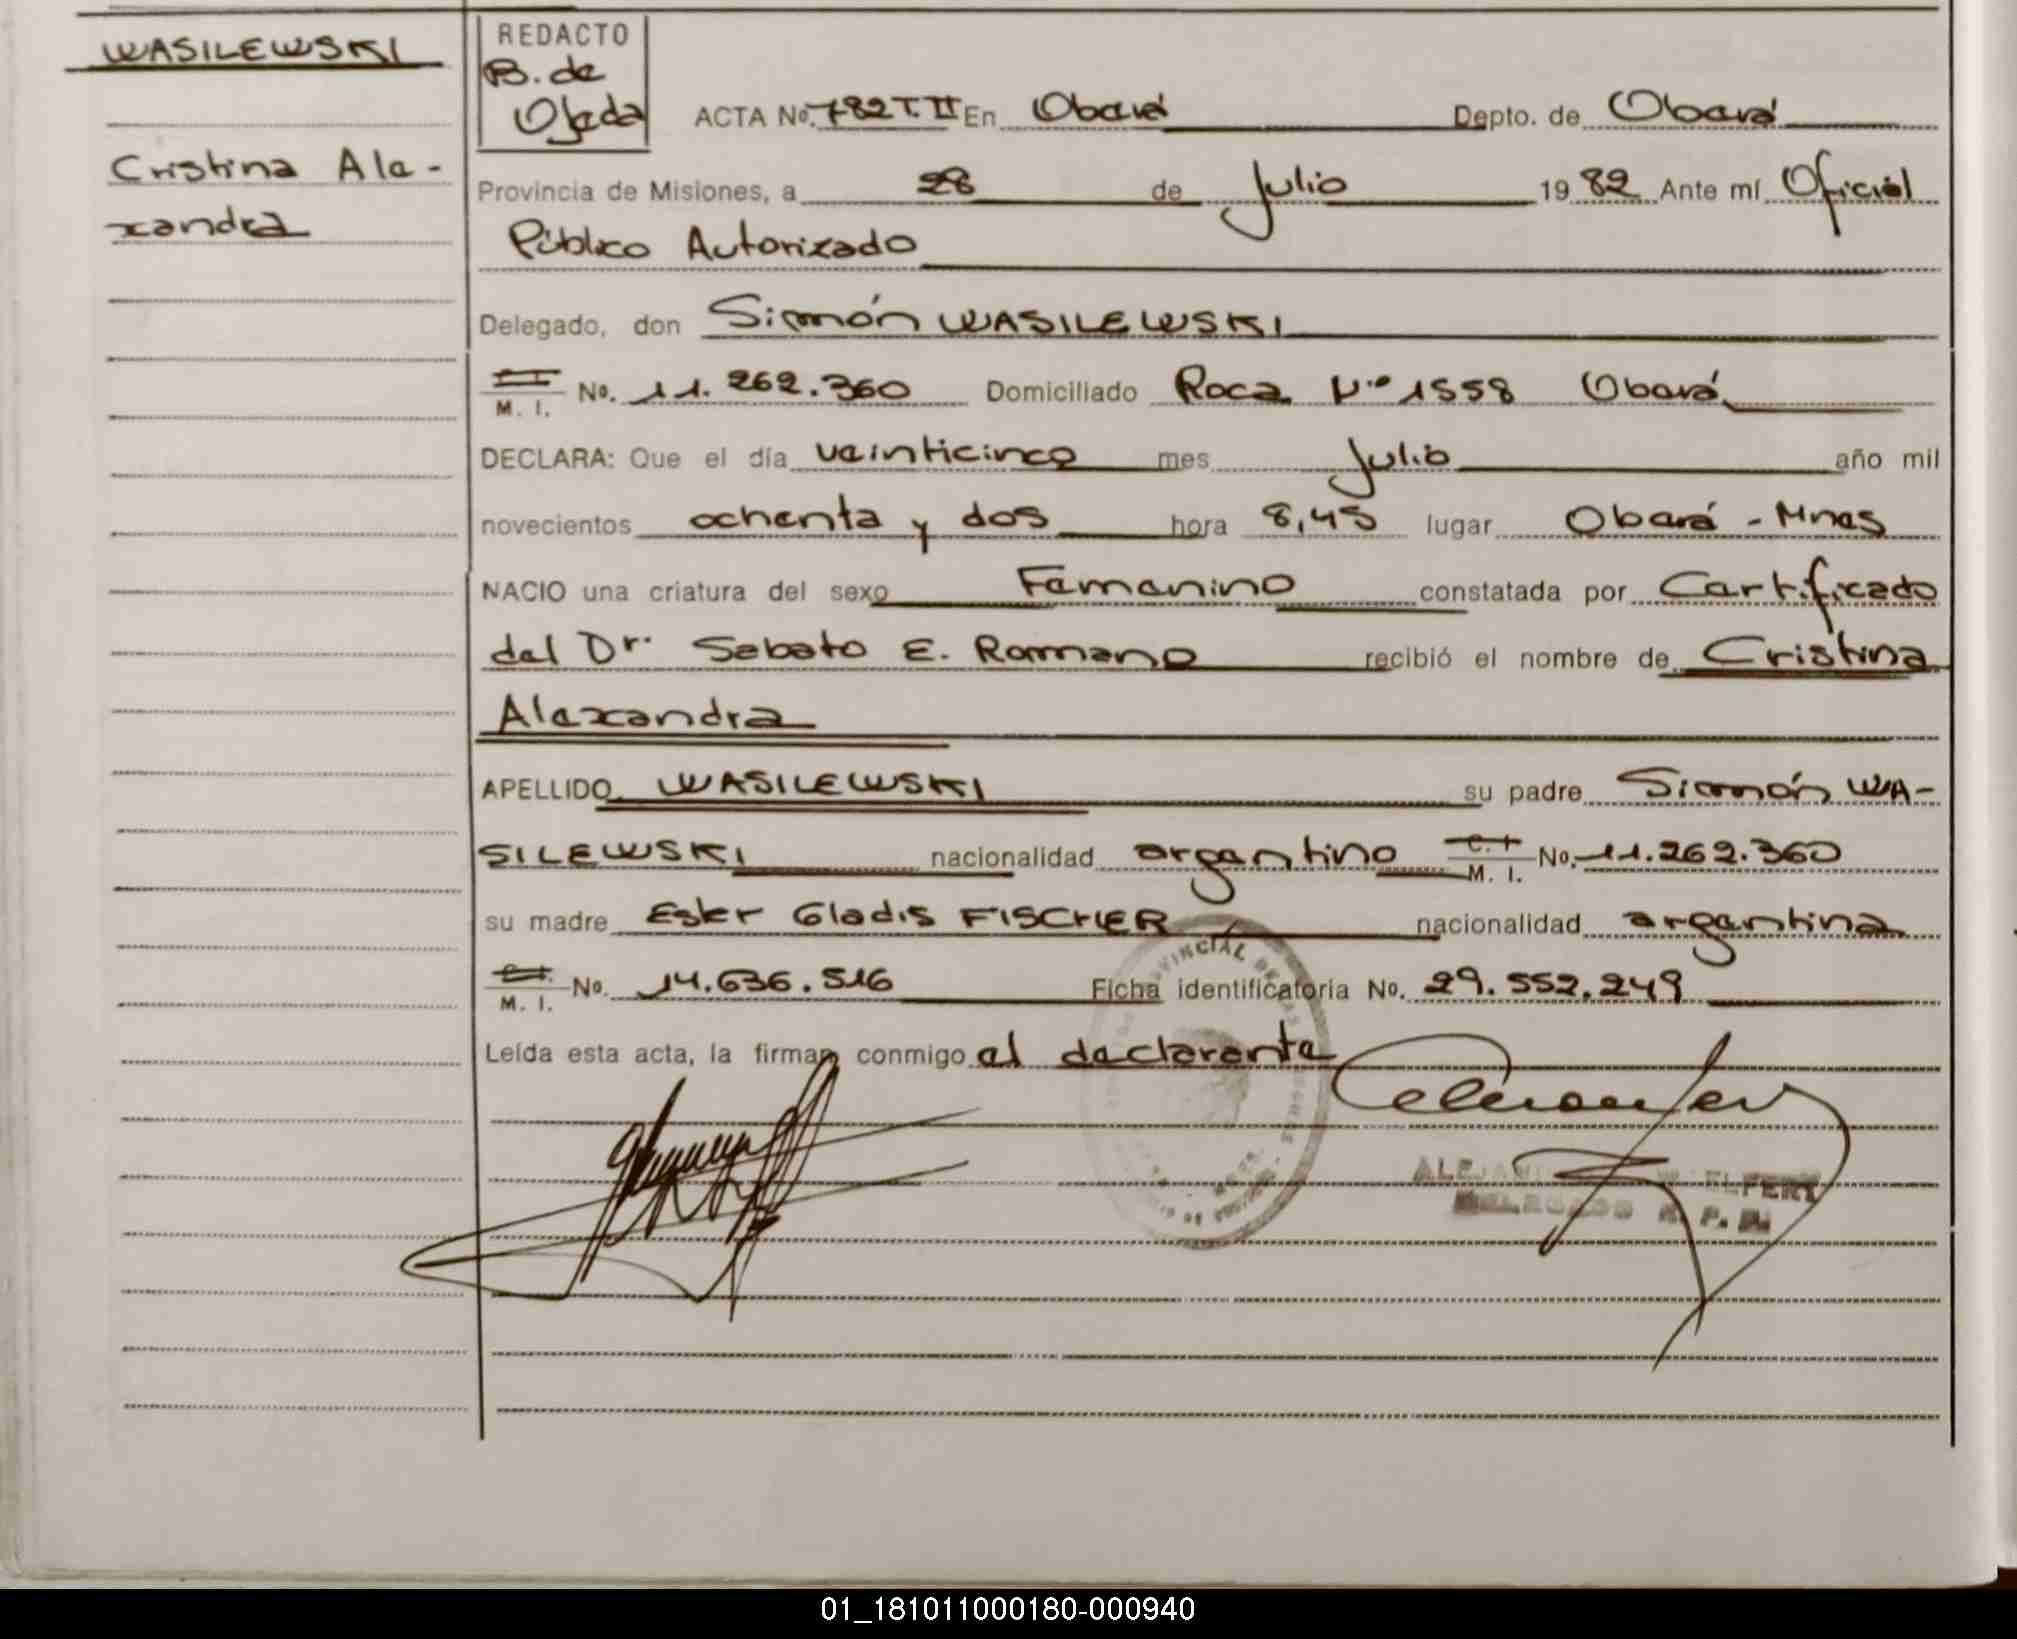 WASILEWSKI
Cristina Ale-
xandra
REDACTO
B. de
Ojeda
ACTA No. 782 T. II En Oberá Depto. de Oberá
Provincia de Misiones, a 28 de Julio 19 82 Ante mí Oficial
Público Autorizado
Delegado, don Simón WASILEWSKI
C. I.
M. I. No. 11.262.360 Domiciliado Roca Nº 1558 Oberá
DECLARA: Que el día veinticinco mes Julio año mil
novecientos ochenta y dos hora 8,45 lugar Oberá - Mnes
NACIO una criatura del sexo Femenino constatada por Certificado
del Dr. Sabato E. Romano recibió el nombre de Cristina
Alexandra
APELLIDO WASILEWSKI su padre Simón WA-
SILEWSKI nacionalidad argentino C. I.
M. I. No. 11.262.360
su madre Ester Gladis FISCHER nacionalidad argentina
C. I.
M. I. No. 14.636.516 Ficha identificatoria No. 29.552.249
Leída esta acta, la firman conmigo el declarante
PROVINCIAL DE LAS
DELEGADO R. P. P.
01_181011000180-000940